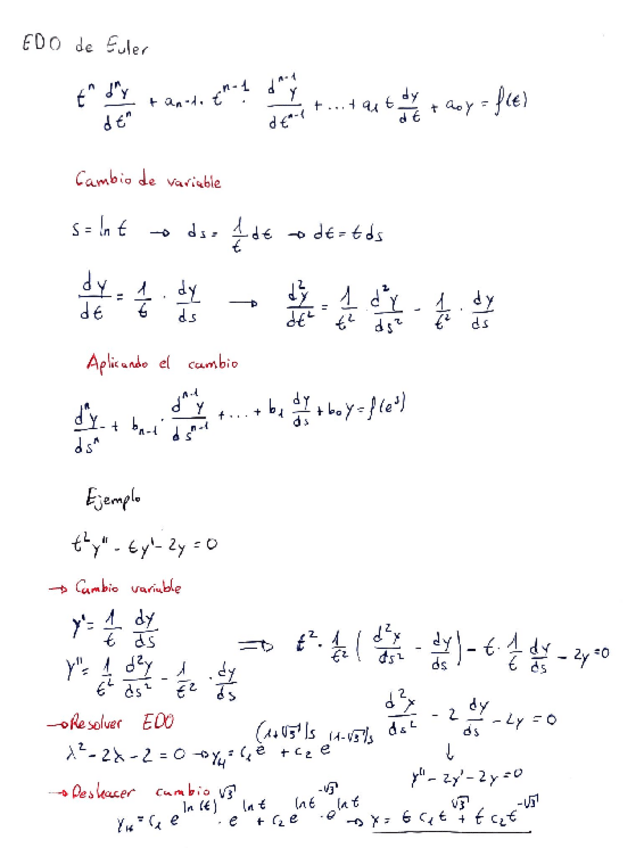 EDO de Euler
tⁿ dⁿy/dtⁿ + aₙ₋₁ · tⁿ⁻¹ · dⁿ⁻¹y/dtⁿ⁻¹ + ... + a₁ t dy/dt + a₀y = f(t)
Cambio de variable
s = ln t → ds = 1/t dt → dt = t ds
dy/dt = 1/t · dy/ds → d²y/dt² = 1/t² · d²y/ds² - 1/t² · dy/ds
Aplicando el cambio
dⁿy/dsⁿ + bₙ₋₁ · dⁿ⁻¹y/dsⁿ⁻¹ + ... + b₁ dy/ds + b₀y = f(eˢ)
Ejemplo
t²y'' - ty' - 2y = 0
→ Cambio variable
y' = 1/t dy/ds
y'' = 1/t² d²y/ds² - 1/t² · dy/ds ⇒ t² · 1/t² ( d²x/ds² - dy/ds ) - t · 1/t dy/ds - 2y = 0
d²x/ds² - 2 dy/ds - 2y = 0
→ Resolver EDO
λ² - 2λ - 2 = 0 → y_H = c₁e^(1+√3)s + c₂e^(1-√3)s
↓
y'' - 2y' - 2y = 0
→ Deshacer cambio
y_H = c₁ e^ln(t)^√3 · e^ln t + c₂e^ln t^-√3 · e^ln t → x = t c₁t^√3 + t c₂t^-√3